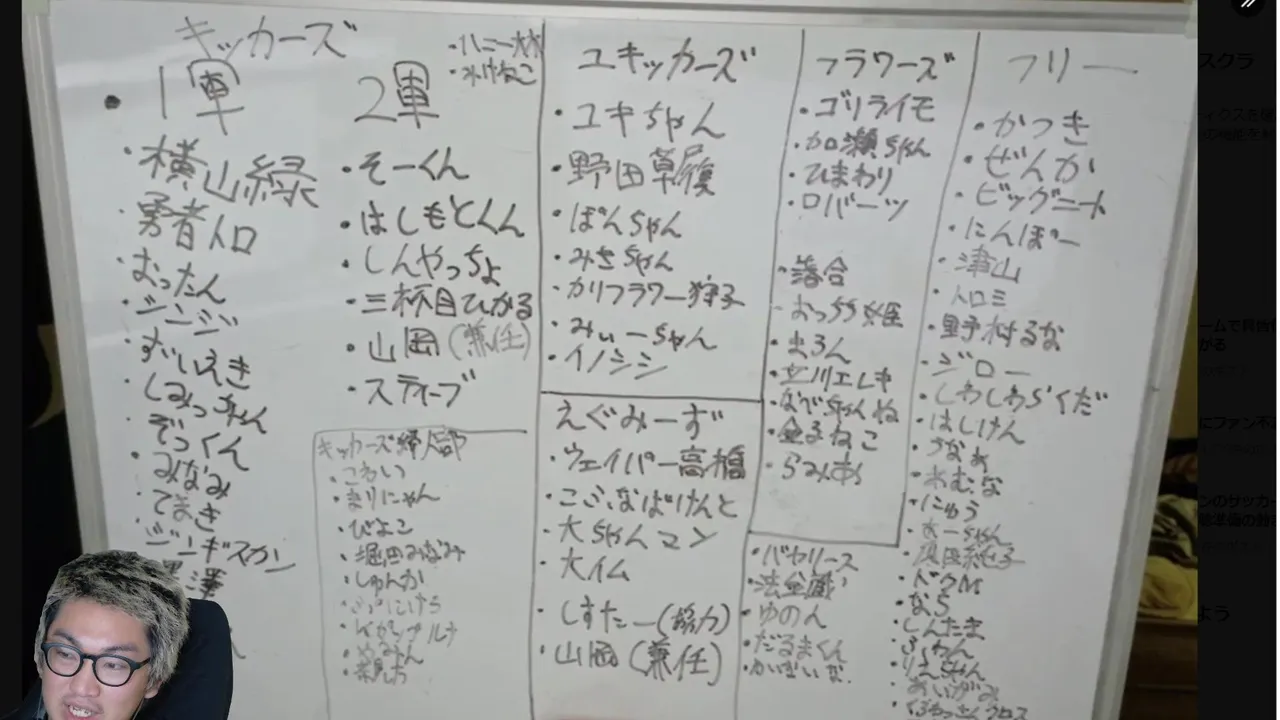 キッカーズ
1軍
横山緑
勇者トロ
おったん
シンジ
ずいえき
しみっちゃん
ぞっくん
みなみ
てまき
ジンギスカン
黒澤
2軍
そーくん
はしもとくん
しんやっちょ
三杯目ひかる
山岡（兼任）
スティーブ
キッカーズ婦人部
こわい
まりにゃん
ぴよこ
堀田みなみ
しゅんか
ユキッカーズ
ユキちゃん
野田草履
ぽんちゃん
みさちゃん
カリフラワー狩子
みぃーちゃん
イノシシ
えぐみーず
ウェイパー高橋
大ちゃんマン
しすたー（協力）
山岡（兼任）
フラワーズ
ゴリライモ
加瀬ちゃん
ひまわり
ロバーツ
落合
おっちゃ姫
まろん
立川エレキ
なべちゃんね
金子ねこ
らみあ
バヤリース
法金蔵
ゆのん
だるまくん
フリー
かつき
ぜんか
ビッグニート
にんぽー
津山
トロミ
野村るな
ジロー
しわしわらくだ
はしけん
うなぁ
れむな
にゅう
なら
しんたま
りえちゃん
スクラ
よう